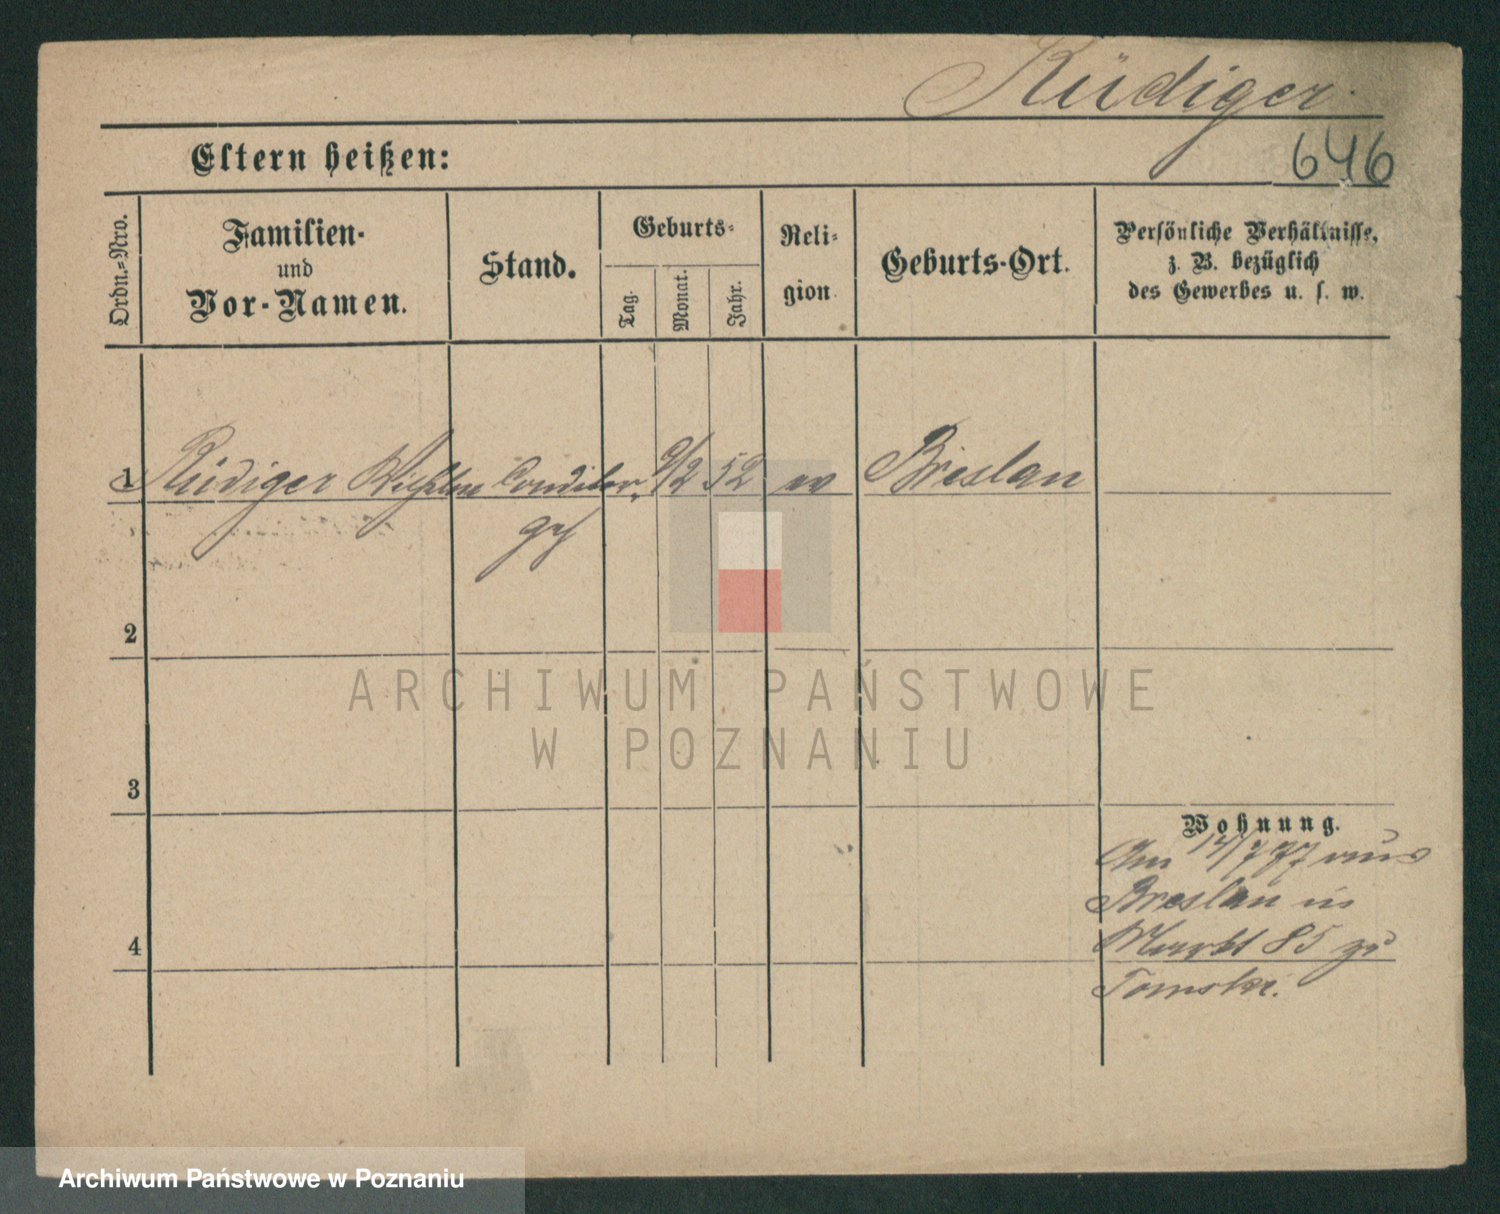 Rüdiger.
Eltern heißen:
646
Ordn.-Nro.
Familien-
und
Vor-Namen.
Stand.
Geburts-
Tag.
Monat.
Jahr.
Reli-
gion
Geburts-Ort.
Persönliche Verhältnisse,
z. B. bezüglich
des Gewerbes u. s. w.
1 Rüdiger Wilhelm Conditor 9/2 52 ev Breslau
2
3
4
Wohnung.
Am 7 77 aus
Breslau in
Markt 85 zu
Tomski.
ARCHIWUM PAŃSTWOWE
W POZNANIU
Archiwum Państwowe w Poznaniu